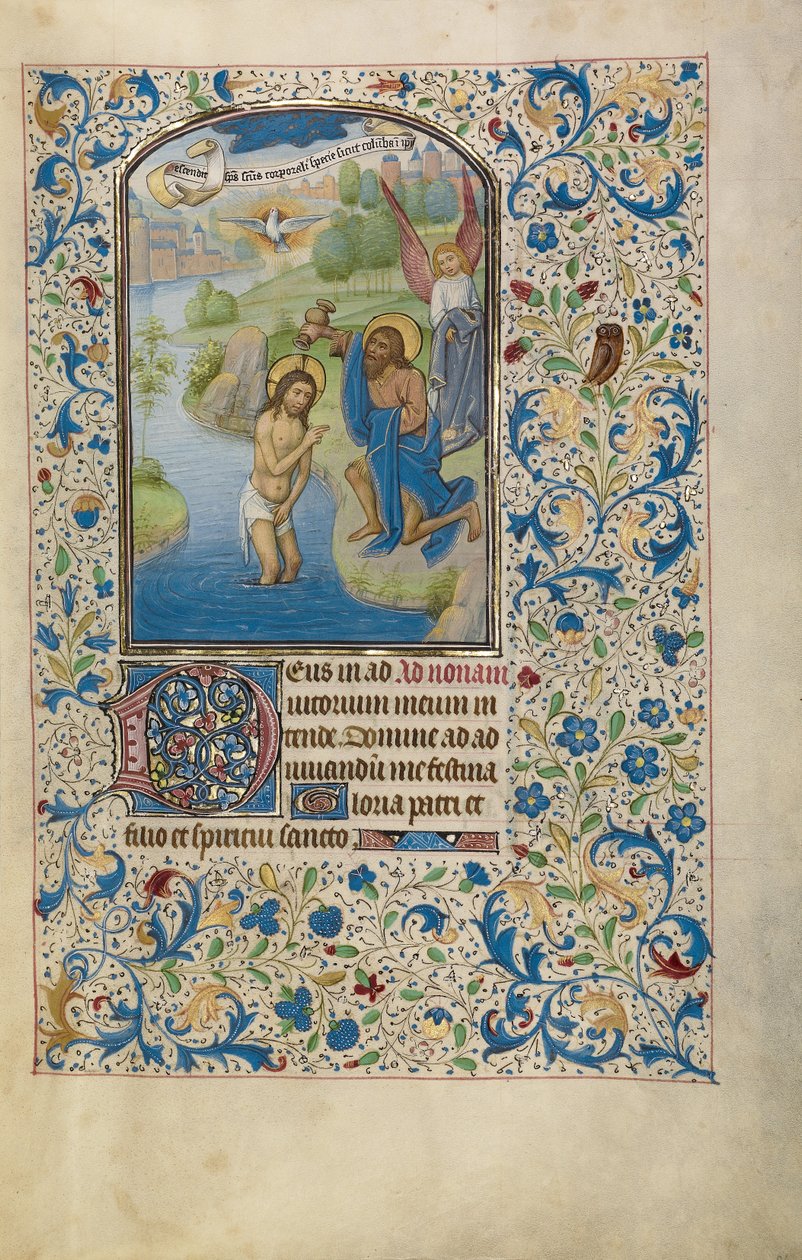 escendit sp̄s sc̄us corporali specie sicut colūba ī ip̄
Eus in ad Ad nonam
iutorium meum in
tende. Domine ad ad
iuuandū me festina
Gloria patri et
filio et spiritui sancto